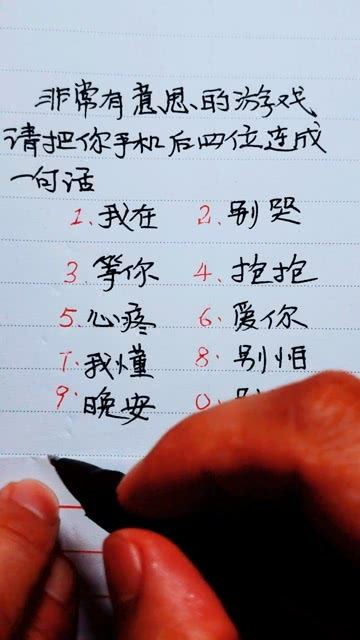 非常有意思、的游戏
请把你手机后四位连成
一句话
1、我在 2、别哭
3、等你 4、抱抱
5、心疼 6、爱你
7、我懂 8、别怕
9、晚安 0、